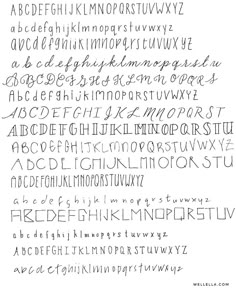 ABCDEFGHIJKLMNOPQRSTUVWXYZ
abcdefghijklmnopqrstuvwxyz
abcdefghijklmnopqrstuvwxyz
ABCDEFGHIJKLMNOPQRSTUVWXYZ
abcdefghijklmnopqrstu
ABCDEFGHIJKLMNOPQRS
abcdefghijklmnopqrstuvwxyz
ABCDEFGHIJKLMNOPQRST
ABCDEFGHIJKLMNOPQRSTU
ABCDEFGHIJKLMNOPQRSTUVWXYZ
ABCDEFGHIJKLMNOPQRSTU
ABCDEFGHIJKLMNOPQRSTUVWXYZ
abcdefghijklmnopqrstuvwxyz
ABCDEFGHIJKLMNOPQRSTUVW
abcdefghijklmnopqrstuvwxyz
ABCDEFGHIJKLMNOPQRSTUVWXYZ
abcdefghijklmnopqrstuvwxyz
WELLELLA.COM